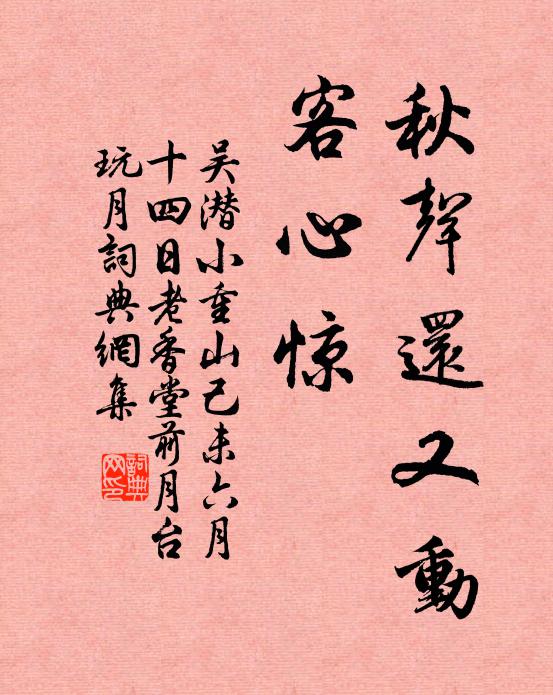 秋聲還又動
客心惊
吴潜小重山己未六月
十四日老香堂前月台
玩月詞典網集
詞典
网印